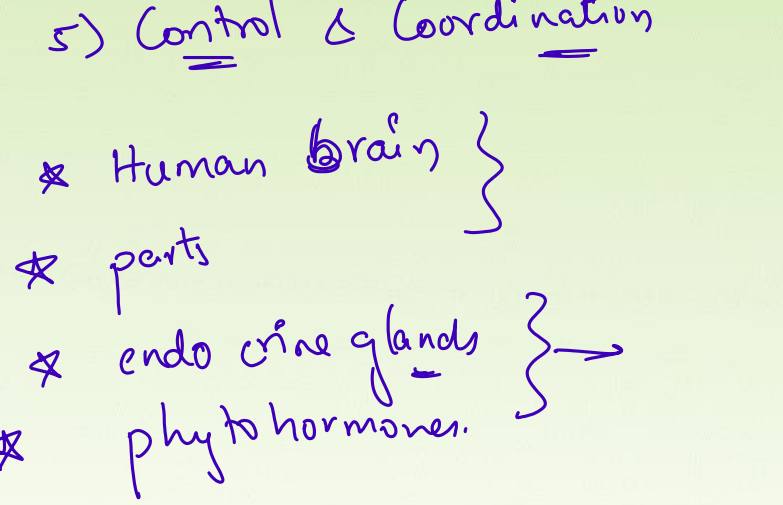 5) Control & Coordination
☆ Human brain
☆ parts
☆ endo crine glands
☆ phytohormones.